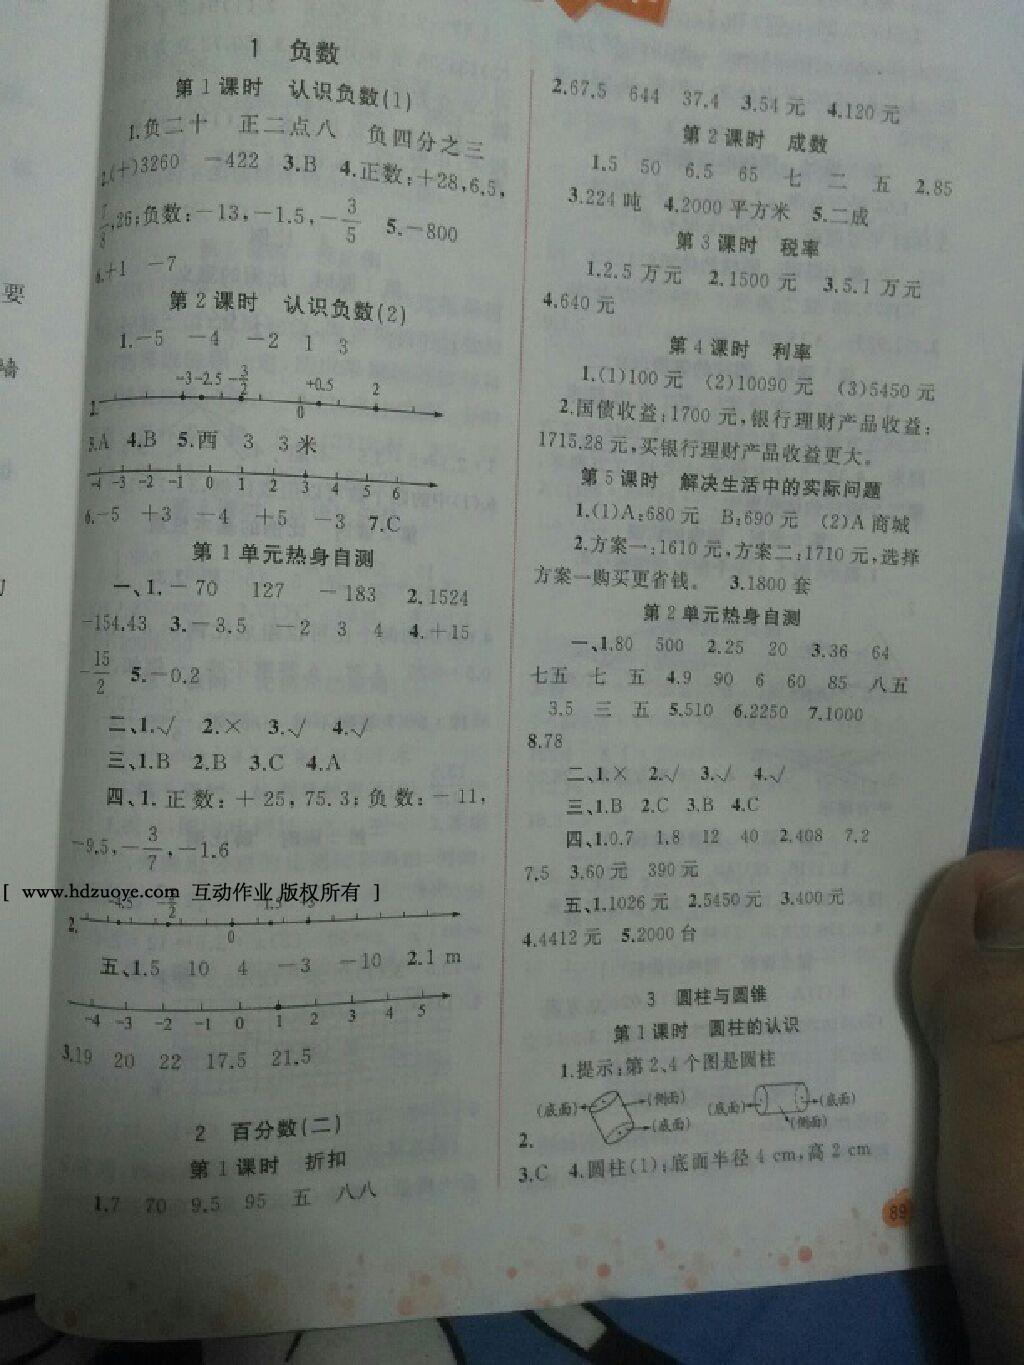 1 负数
第1课时 认识负数(1)
1.负二十 正二点八 负四分之三
2.(+)3260 -422 3.B 4.正数:+28,6.5,
7/8,26;负数:-13,-1.5,-3/5 5.-800
6.+1 -7
第2课时 认识负数(2)
1.-5 -4 -2 1 3
-3 -2.5 -3/2 0 +0.5 2
2.
3.A 4.B 5.西 3 3米
-4 -3 -2 -1 0 1 2 3 4 5 6
6.-5 +3 -4 +5 -3 7.C
第1单元热身自测
一、1.-70 127 -183 2.1524
-154.43 3.-3.5 -2 3 4 4.+15
-15/2 5.-0.2
二、1.√ 2.× 3.√ 4.√
三、1.B 2.B 3.C 4.A
四、1.正数:+25,75.3;负数:-11,
-9.5,-3/7,-1.6
[ www.hdzuoye.com 互动作业 版权所有 ]
2.
0
五、1.5 10 4 -3 -10 2.1 m
-4 -3 -2 -1 0 1 2 3 4 5
3.19 20 22 17.5 21.5
2 百分数(二)
第1课时 折扣
1.7 70 9.5 95 五 八八
2.67.5 644 37.4 3.54元 4.120元
第2课时 成数
1.5 50 6.5 65 七 二 五 2.85
3.224吨 4.2000平方米 5.二成
第3课时 税率
1.2.5万元 2.1500元 3.5.1万元
4.640元
第4课时 利率
1.(1)100元 (2)10090元 (3)5450元
2.国债收益:1700元,银行理财产品收益:
1715.28元,买银行理财产品收益更大。
第5课时 解决生活中的实际问题
1.(1)A:680元 B:690元 (2)A商城
2.方案一:1610元,方案二:1710元,选择
方案一购买更省钱。 3.1800套
第2单元热身自测
一、1.80 500 2.25 20 3.36 64
七五 七 五 4.9 90 6 60 85 八五
3.5 三 五 5.510 6.2250 7.1000
8.78
二、1.× 2.√ 3.√ 4.√
三、1.B 2.C 3.B 4.C
四、1.0.7 1.8 12 40 2.408 7.2
7.5 3.60元 390元
五、1.1026元 2.5450元 3.400元
4.4412元 5.2000台
3 圆柱与圆锥
第1课时 圆柱的认识
1.提示:第2、4个图是圆柱
(底面) (侧面) (底面) (底面)
2. (底面) (侧面)
3.C 4.圆柱(1):底面半径4 cm,高2 cm
89
要
墙